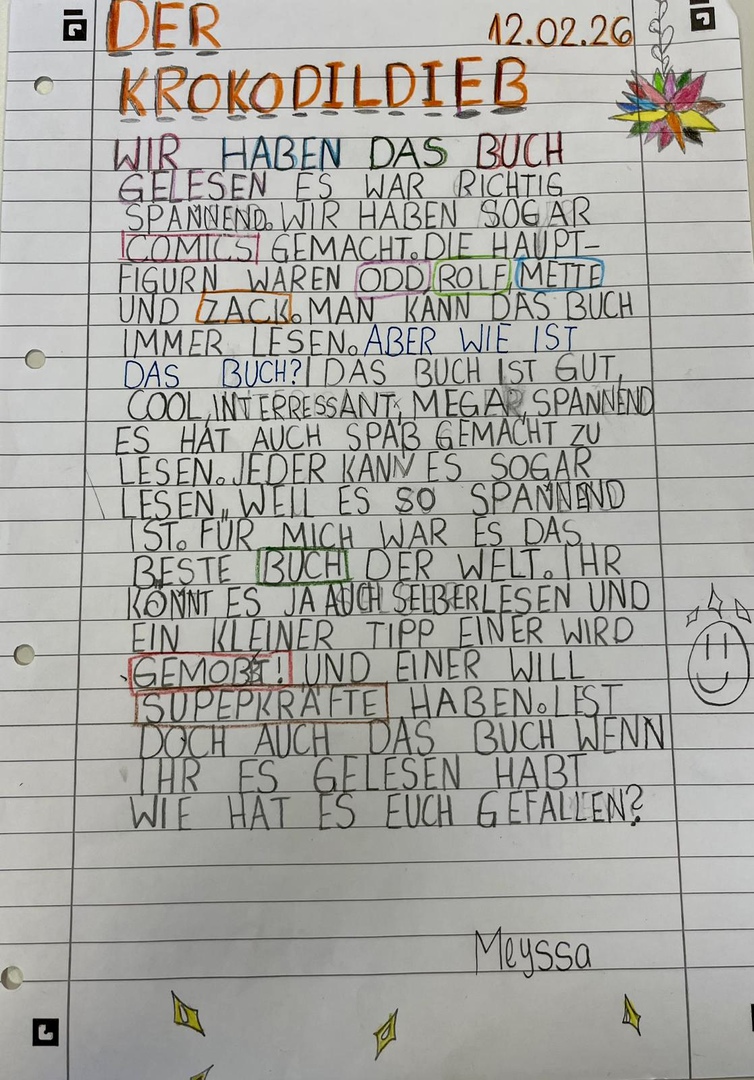 DER
12.02.26
KROKODILDIEB
WIR HABEN DAS BUCH
GELESEN ES WAR RICHTIG
SPANNEND. WIR HABEN SOGAR
COMICS GEMACHT. DIE HAUPT-
FIGURN WAREN ODD ROLF METTE
UND ZACK. MAN KANN DAS BUCH
IMMER LESEN. ABER WIE IST
DAS BUCH? DAS BUCH IST GUT,
COOL, INTERRESSANT, MEGA, SPANNEND
ES HAT AUCH SPAß GEMACHT ZU
LESEN. JEDER KANN ES SOGAR
LESEN, WEIL ES SO SPANNEND
IST. FÜR MICH WAR ES DAS
BESTE BUCH DER WELT. IHR
KÖNNT ES JA AUCH SELBER LESEN UND
EIN KLEINER TIPP EINER WIRD
GEMOBT! UND EINER WILL
SUPEPKRÄFTE HABEN. LEST
DOCH AUCH DAS BUCH WENN
IHR ES GELESEN HABT
WIE HAT ES EUCH GEFALLEN?
Meyssa